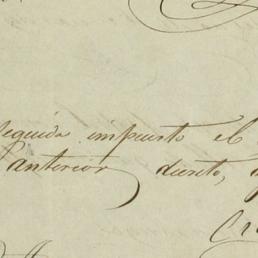 seguida impuesto el
anterior decreto,